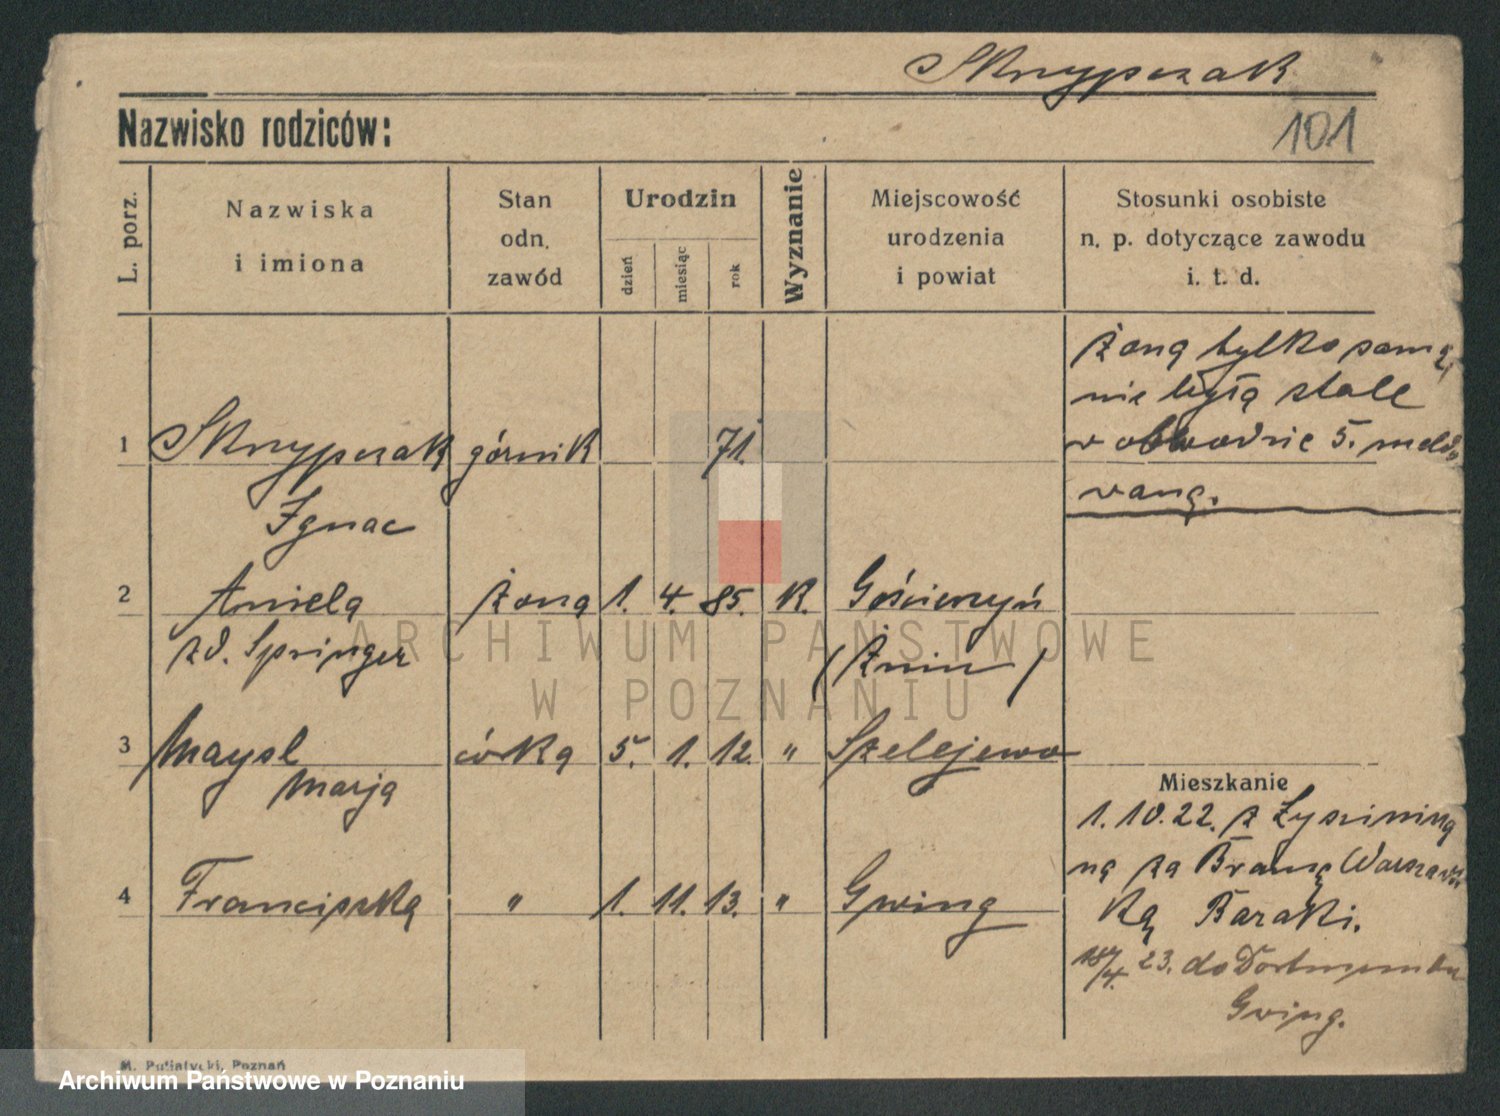 Skrzypczak
Nazwisko rodziców:
101
L. porz.
Nazwiska
i imiona
Stan
odn.
zawód
Urodzin
dzień
miesiąc
rok
Wyznanie
Miejscowość
urodzenia
i powiat
Stosunki osobiste
n. p. dotyczące zawodu
i. t. d.
żona tylko sama,
nie była stale
w obwodzie 5. meldo
wana.
1 Skrzypczak górnik 71.
Ignac
2 Aniela żona 1. 4. 85. K. Gościeszyn
zd. Springer (Żnin)
3 Maysl córka 5. 1. 12. " Szelejewo
Marja
4 Franciszka " 1. 11. 13. " Gwing
Mieszkanie
1. 10. 22. z
na za Bramą Warszaws
ką Baraki.
18/4. 23. do Dortmundu
Gwing.
M. Putiatycki, Poznań
ARCHIWUM PAŃSTWOWE
W POZNANIU
Archiwum Państwowe w Poznaniu